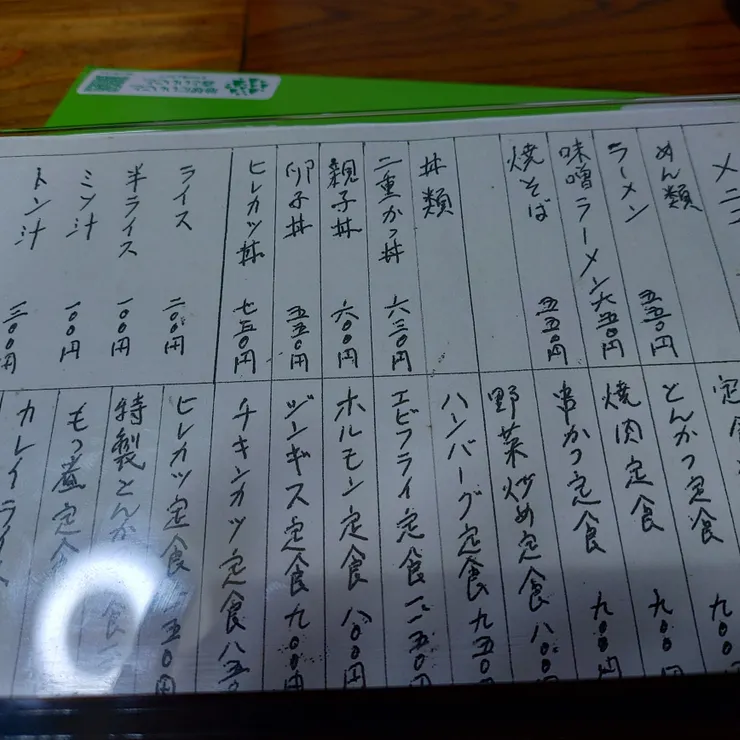 メニュー
めん類
ラーメン 五五〇円
味噌ラーメン 六五〇円
焼そば 五五〇円
丼類
二重かつ丼 六三〇円
親子丼 六〇〇円
卵子丼 五五〇円
ヒレカツ丼 七五〇円
ライス 二〇〇円
半ライス 一〇〇円
ミソ汁 一〇〇円
トン汁 三〇〇円
とんかつ定食 九〇〇円
焼肉定食 九〇〇円
串かつ定食 九〇〇円
野菜炒め定食 八〇〇円
ハンバーグ定食 九五〇円
エビフライ定食 一一五〇円
ホルモン定食 八〇〇円
ジンギス定食 九〇〇円
チキンカツ定食 八五〇
ヒレカツ定食 一一五〇円
特製とんか 食
もつ煮定食
カレイライス